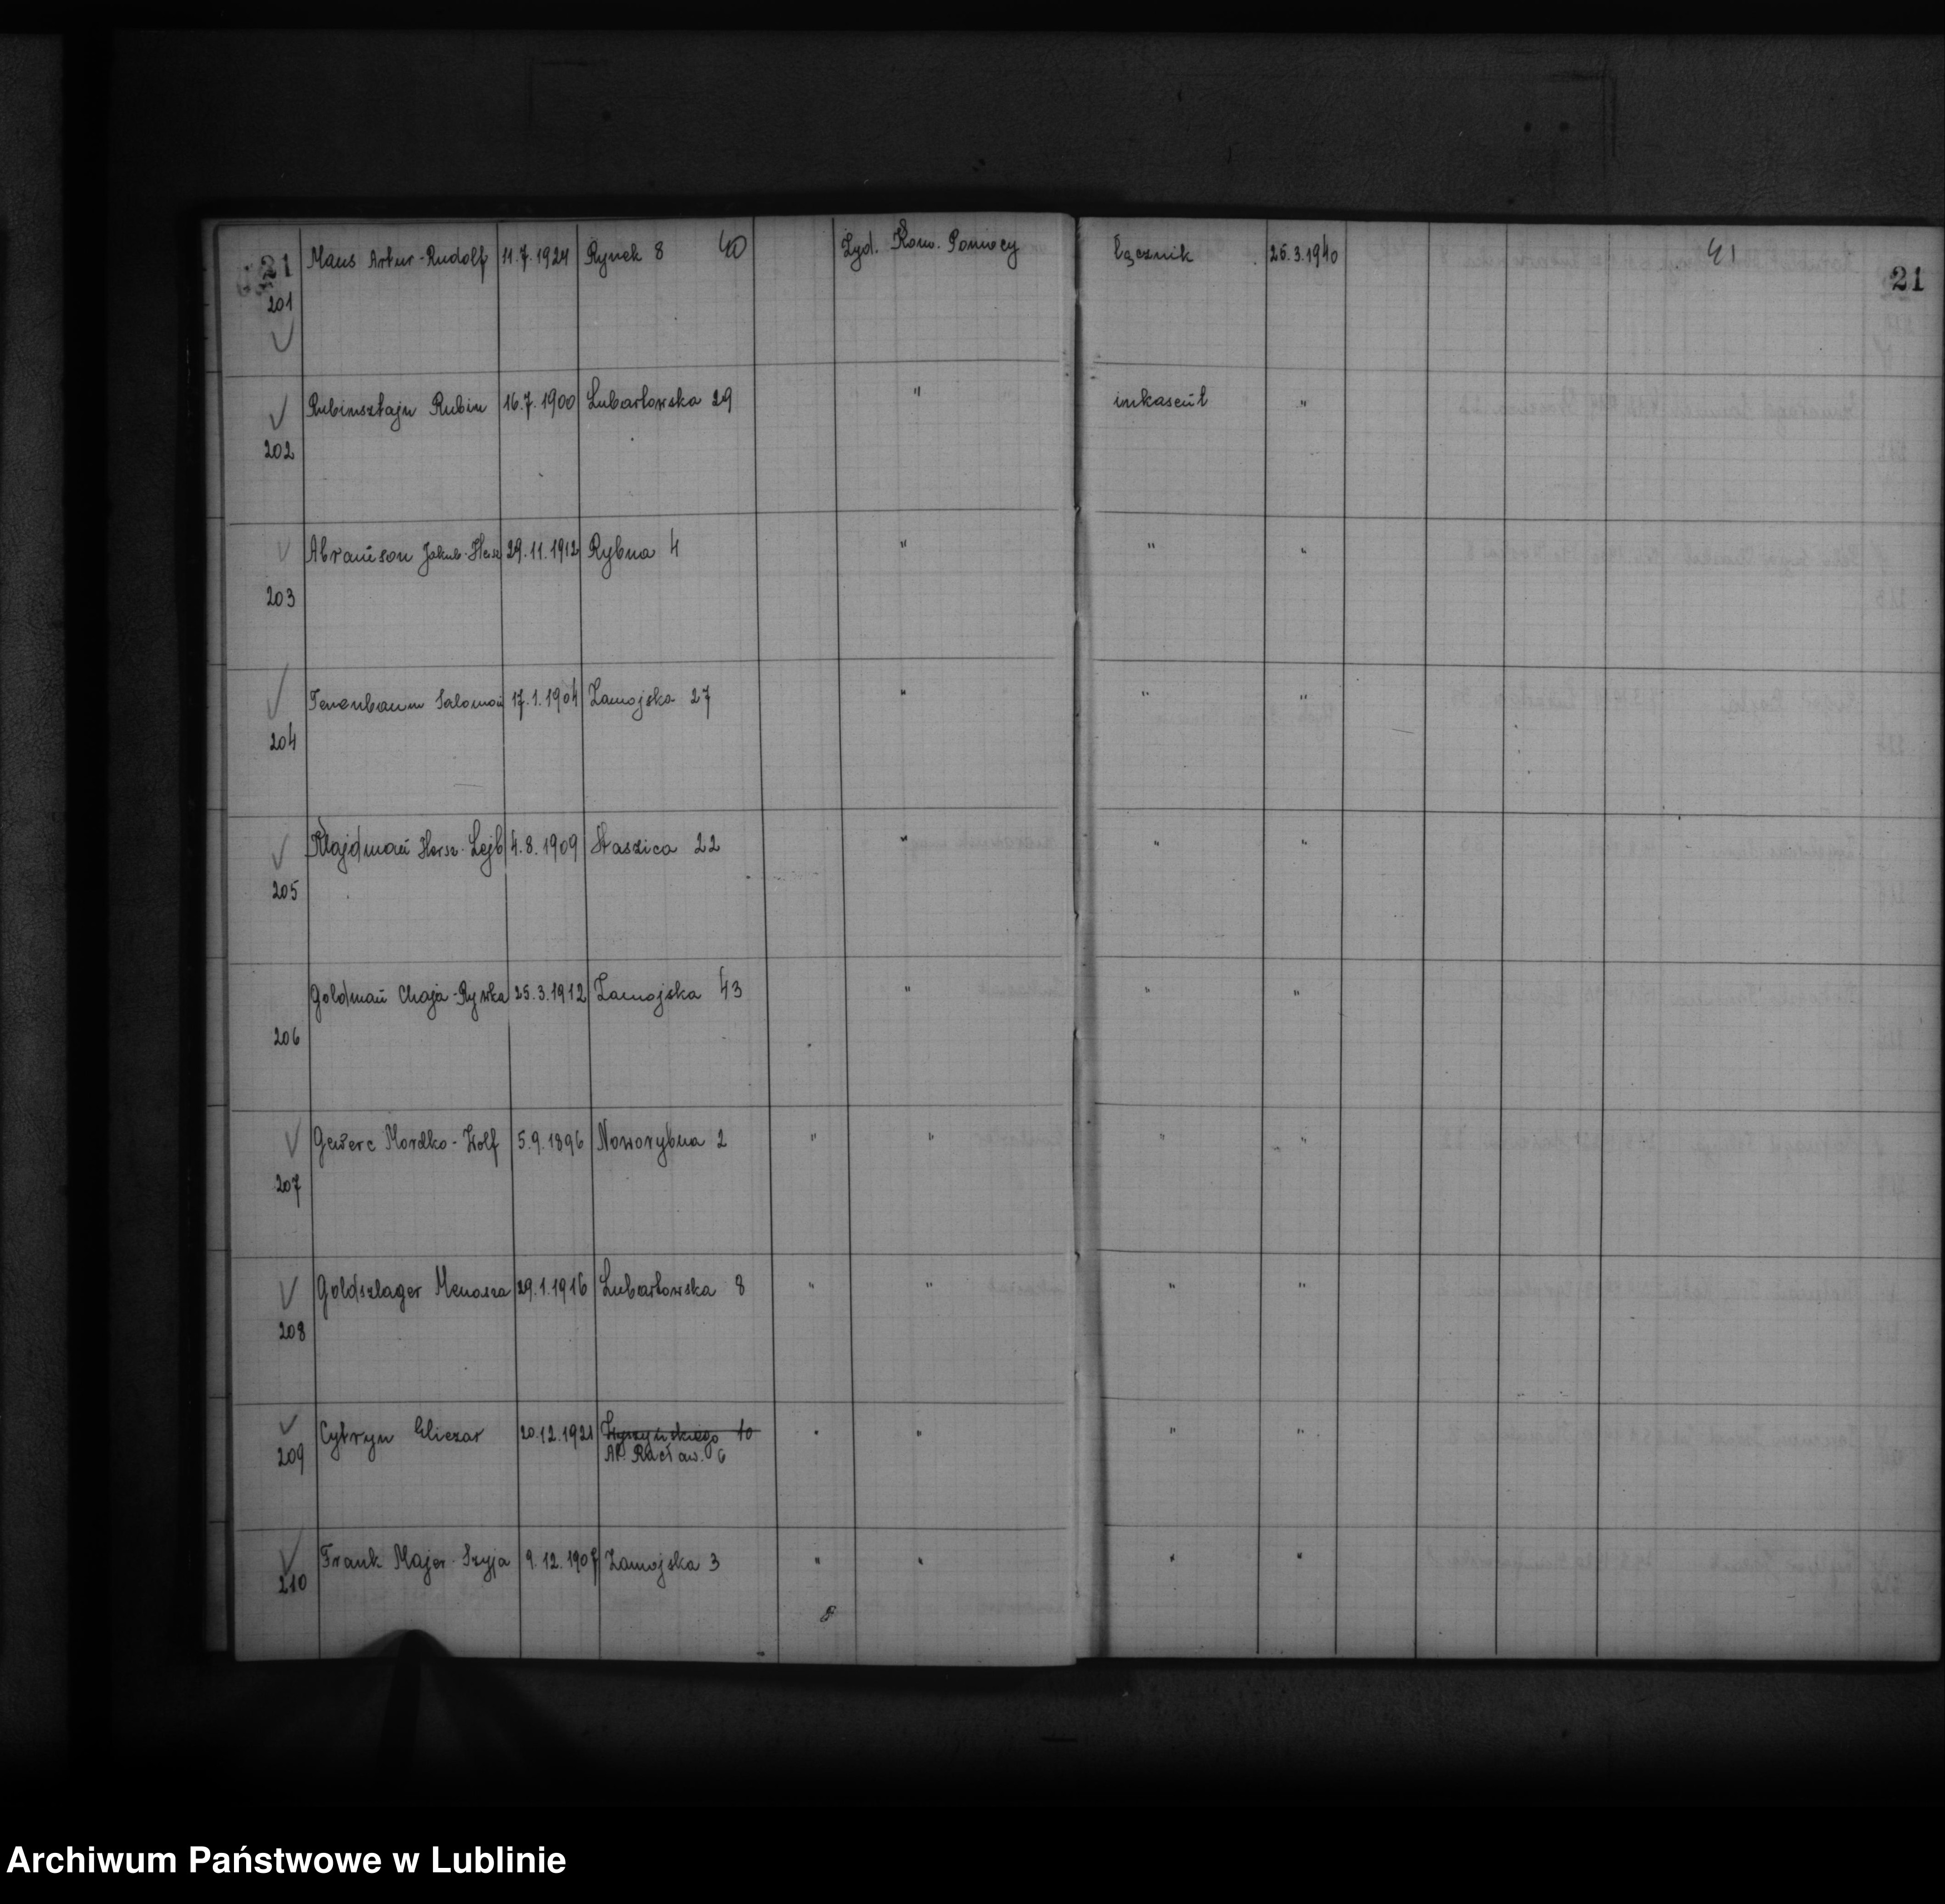 21 Maus Artur-Rudolf 11.7.1924 Rynek 8 40 Żyd. Kom. Pomocy łącznik 26.3.1940 41 21
201
Rubinsztajn Rubin 16.7.1900 Lubartowska 29 " inkaseut "
202
Abramson Jakub-Hersz 29.11.1912 Rybna 4 " " "
203
Tenenbaum Salomon 17.1.1904 Zamojska 27 " " "
204
Klajdman Hersz-Lejb 4.8.1909 Staszica 22 " " "
205
Goldman Chaja-Rywka 25.3.1912 Zamojska 43 " " "
206
Gewerc Mordko-Wolf 5.9.1896 Noworybna 2 " " " "
207
Goldszlager Menasza 29.1.1916 Lubartowska 8 " " " "
208
Cytryn Eliezar 20.12.1921 10 " " " "
209 Al. Racław. 6
Frank Majer-Szyja 9.12.1907 Zamojska 3 " " " "
210
Archiwum Państwowe w Lublinie